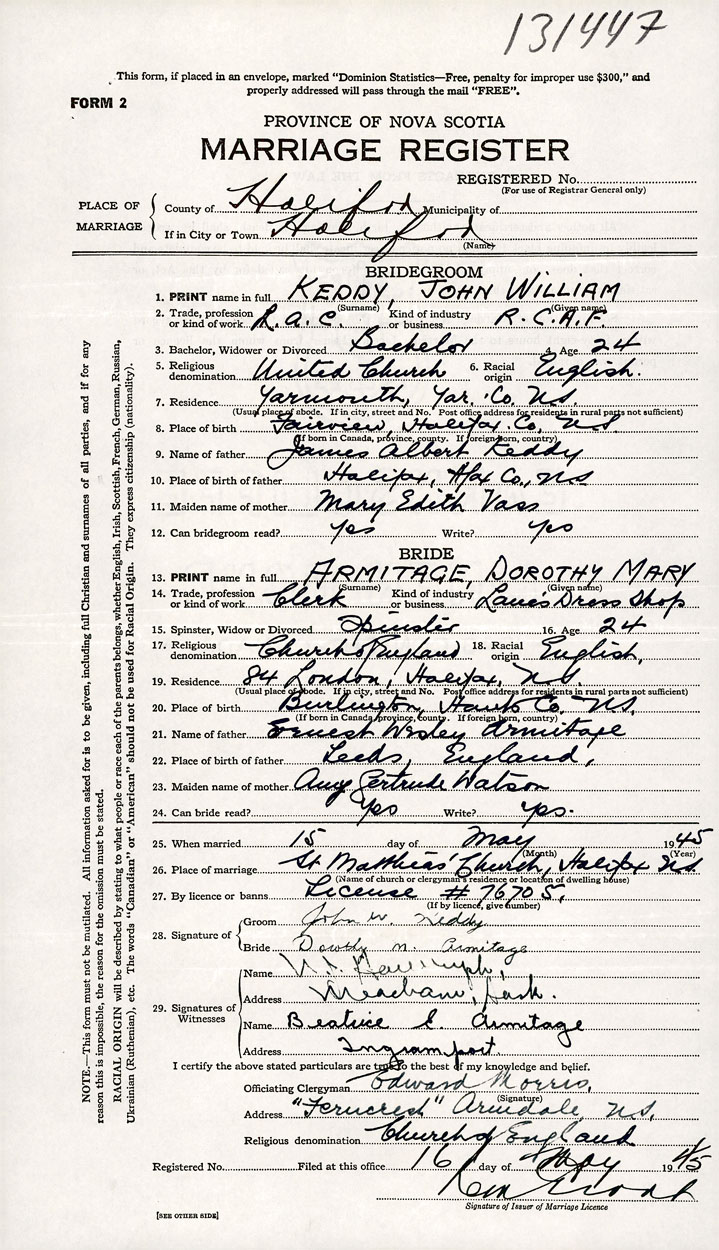 131447
This form, if placed in an envelope, marked “Dominion Statistics—Free, penalty for improper use $300,” and
properly addressed will pass through the mail “FREE”.
FORM 2
PROVINCE OF NOVA SCOTIA
MARRIAGE REGISTER
REGISTERED No.
(For use of Registrar General only)
PLACE OF MARRIAGE
County of Halifax Municipality of
If in City or Town Halifax
(Name)
BRIDEGROOM
1. PRINT name in full KEDDY, JOHN WILLIAM
(Surname) (Given name)
2. Trade, profession or kind of work L.A.C. Kind of industry or business R.C.A.F.
3. Bachelor, Widower or Divorced Bachelor 4. Age 24
5. Religious denomination United Church 6. Racial origin English.
7. Residence Yarmouth, Yar. Co. N.S.
(Usual place of abode. If in city, street and No. Post office address for residents in rural parts not sufficient)
8. Place of birth Fairview, Halifax Co. N.S
(If born in Canada, province, county. If foreign born, country)
9. Name of father James Albert Keddy
10. Place of birth of father Halifax, Hfx Co., N.S
11. Maiden name of mother Mary Edith Vass
12. Can bridegroom read? yes Write? yes
BRIDE
13. PRINT name in full ARMITAGE, DOROTHY MARY
(Surname) (Given name)
14. Trade, profession or kind of work Clerk Kind of industry or business Dress Shop
15. Spinster, Widow or Divorced Spinster 16. Age 24
17. Religious denomination Church of England 18. Racial origin English,
19. Residence 84 London, Halifax, N.S.
(Usual place of abode. If in city, street and No. Post office address for residents in rural parts not sufficient)
20. Place of birth Burlington, Hants Co. N.S.
(If born in Canada, province, county. If foreign born, country)
21. Name of father Ernest Wesley Armitage
22. Place of birth of father Leeds, England,
23. Maiden name of mother Amy Gertrude Watson
24. Can bride read? Yes Write? yes.
25. When married 15 day of May 1945
(Month) (Year)
26. Place of marriage St Matthias' Church, Halifax N.S.
(Name of church or clergyman's residence or location of dwelling house)
27. By licence or banns License # 76705,
(If by licence, give number)
28. Signature of
Groom John W. Keddy
Bride Dorothy M. Armitage
29. Signatures of Witnesses
Name
Address Meacham, Sask.
Name Beatrice E. Armitage
Address Ingramport.
I certify the above stated particulars are true to the best of my knowledge and belief.
Officiating Clergyman Edward Morris,
(Signature)
Address "Ferncrest" Armdale, N.S.
Religious denomination Church of England
Registered No. Filed at this office 16 day of May 1945
Signature of Issuer of Marriage Licence
[SEE OTHER SIDE]
NOTE.—This form must not be mutilated. All information asked for is to be given, including full Christian and surnames of all parties, and if for any
reason this is impossible, the reason for the omission must be stated.
RACIAL ORIGIN will be described by stating to what people or race each of the parents belongs, whether English, Irish, Scottish, French, German, Russian,
Ukrainian (Ruthenian), etc. The words “Canadian” or “American” should not be used for Racial Origin. They express citizenship (nationality).